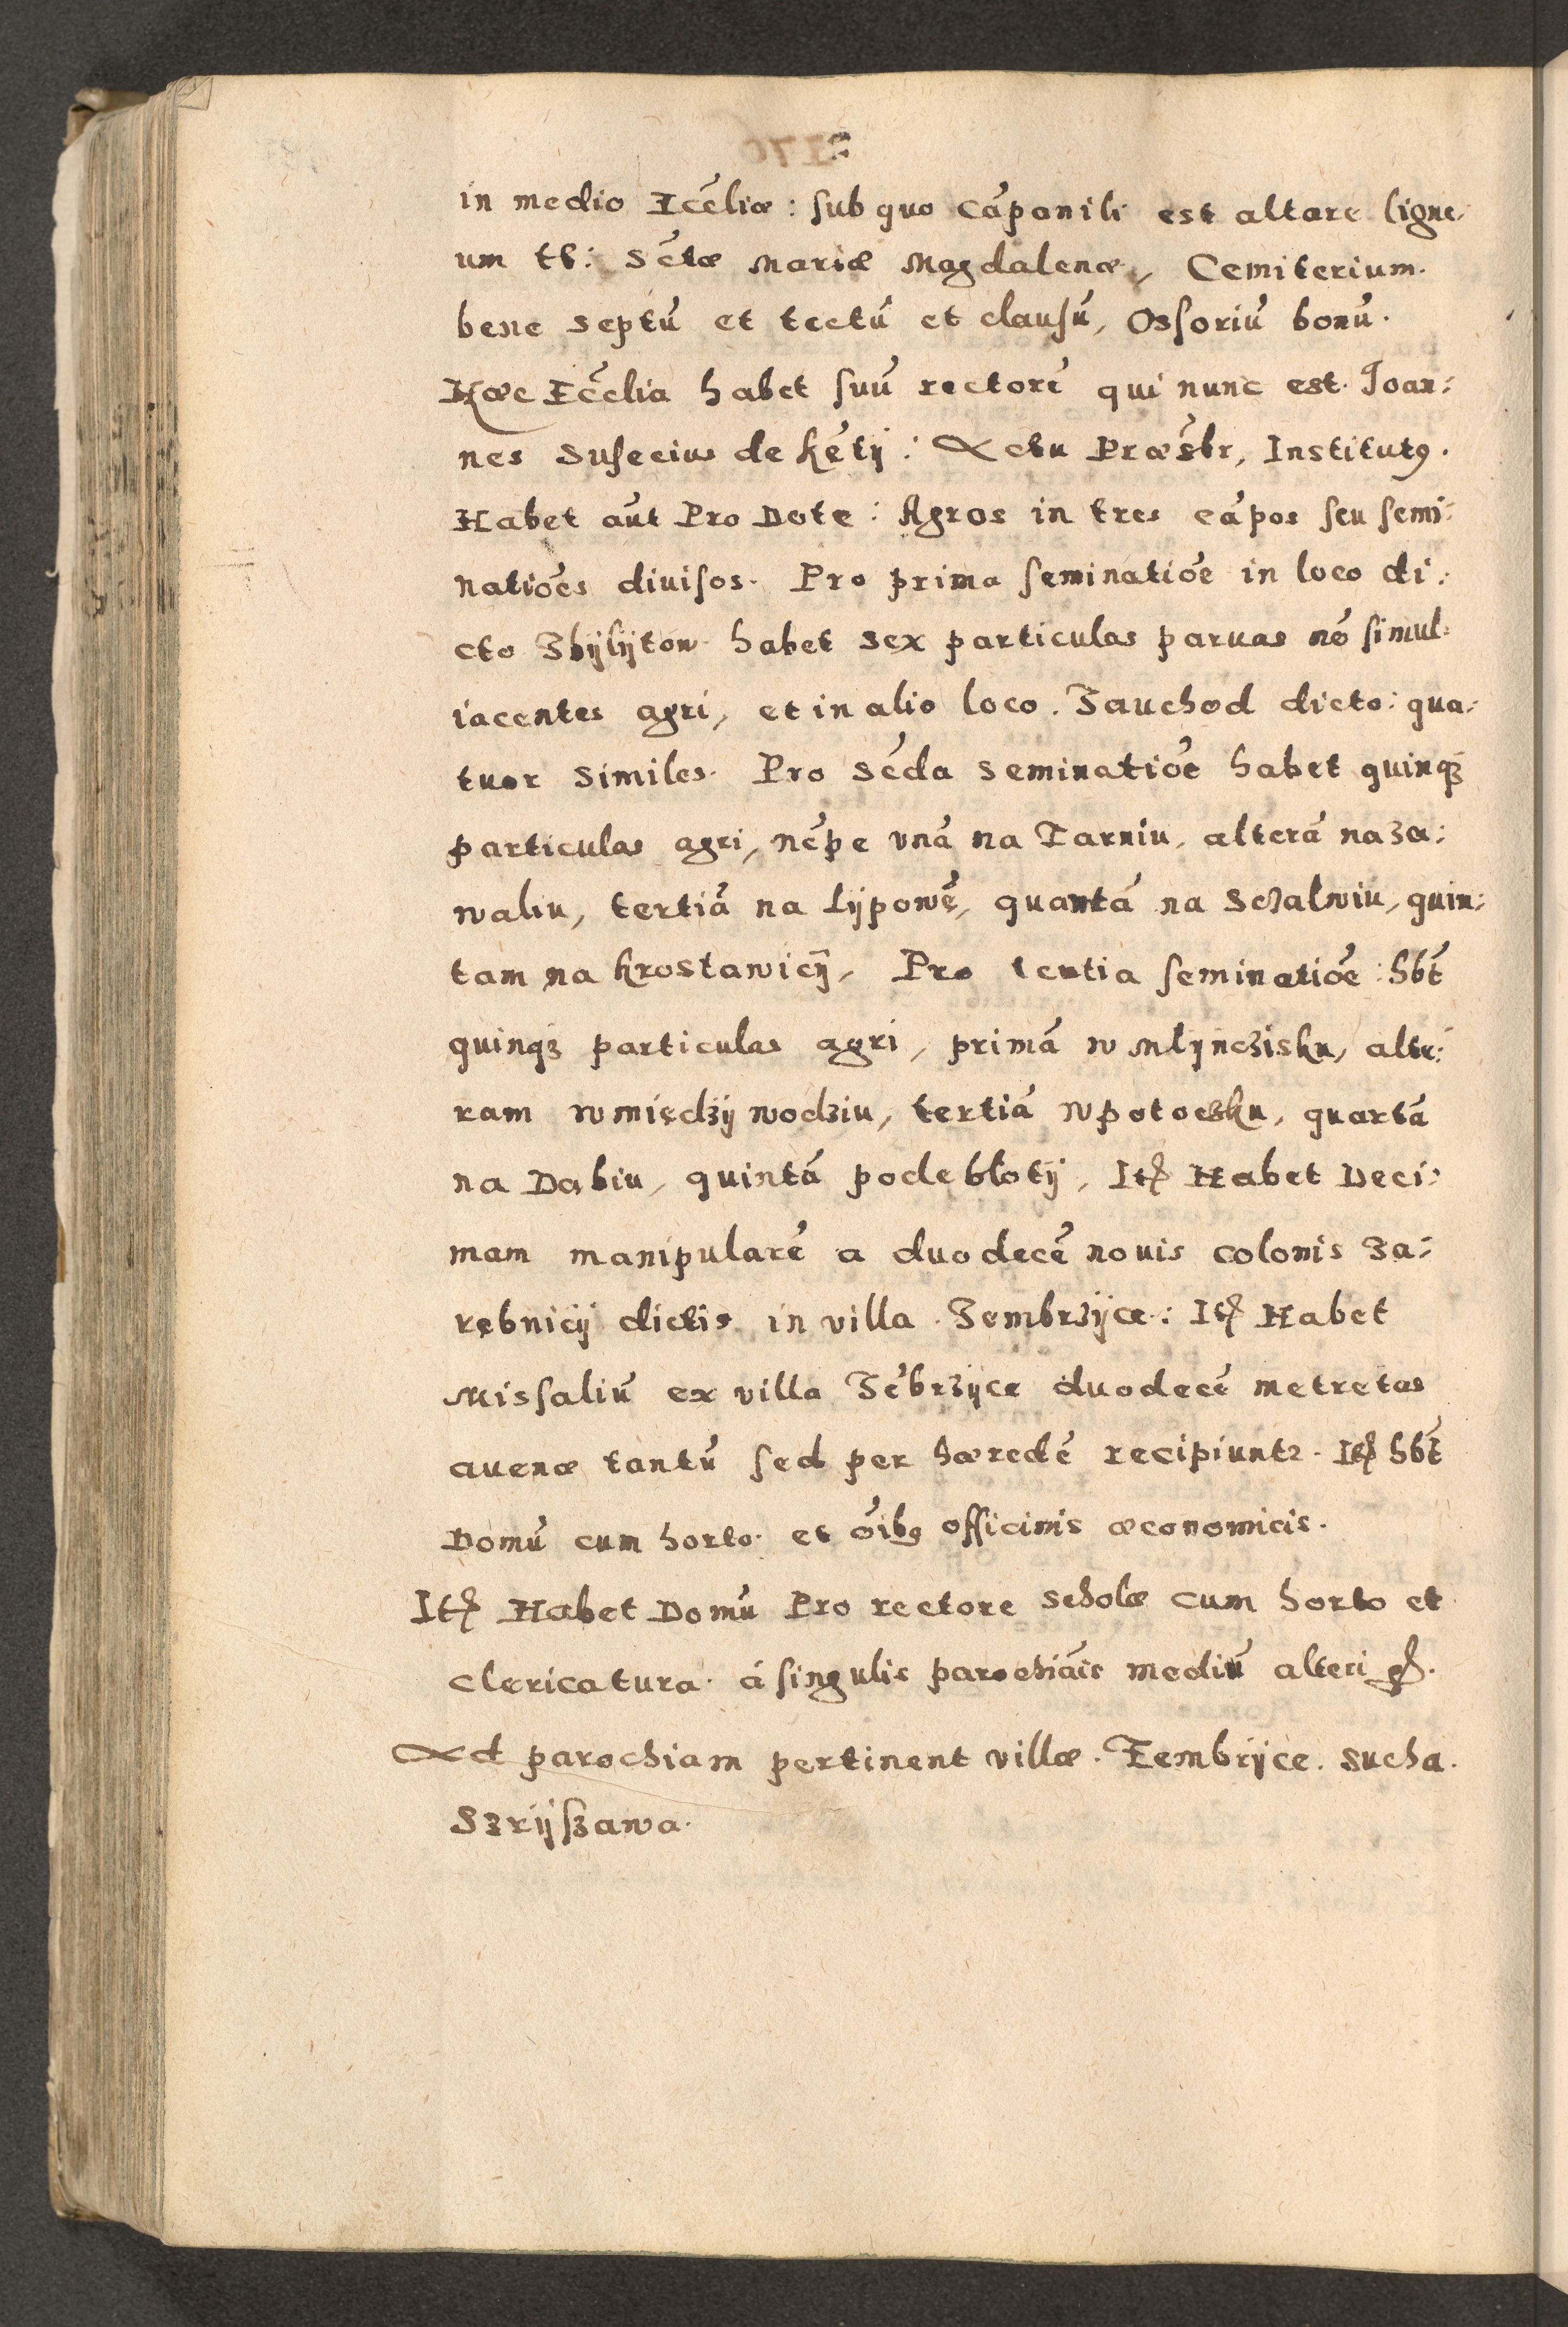 in medio Ecc̃liæ : sub quo cãpanili est altare ligne-
um tt: Sc̃tæ Mariæ Magdalenæ, Cemiterium.
bene septũ et tectũ et clausũ, Ossoriũ bonũ.
Hæc Ecc̃lia habet suũ rectorẽ qui nunc est. Joan:
nes Susecius de Kẽtÿ : Actu Præsbr, Institutꝯ.
Habet aũt Pro Dote : Agros in tres cãpos seu semi:
natiões diuisos. Pro prima seminatiõe in loco di:
cto Zbÿlÿtow habet sex particulas paruas nõ simul:
iacentes agri, et in alio loco. Zauchod dicto: qua:
tuor similes. Pro sc̃da seminatiõe habet quinqꝫ
particulas agri, nẽpe vnã na Tarniu, alterã na za:
waliu, tertiã na Lÿpowẽ, quartã na Schalwiu, quin:
tam na Krostawicÿ, Pro tertia seminatiõe : hb̃t
quinqꝫ particulas agri, primã w Mlÿncзisku, alte:
ram w międзÿ wodзiu, tertiã w potoczku, quartã
na Dabiu, quintã pode błotÿ, Itẽ Habet Deci:
mam manipularẽ a duodecẽ nouis colonis Za:
rębnicÿ dictis in villa. Zembrzÿce : Itẽ Habet
Missaliũ ex villa Zẽbrzÿce duodecẽ metretas
auenæ tantũ sed per hæredẽ recipiuntꝛ. Itẽ hb̃t
Domũ cum horto. et õibꝯ officinis œconomicis.
Itẽ Habet Domũ Pro rectore scholæ cum horto et
clericatura. á singulis parochiãis mediũ alteri gr̃.
Ad parochiam pertinent villæ. Zembrÿce. Sucha.
Szrÿszawa.